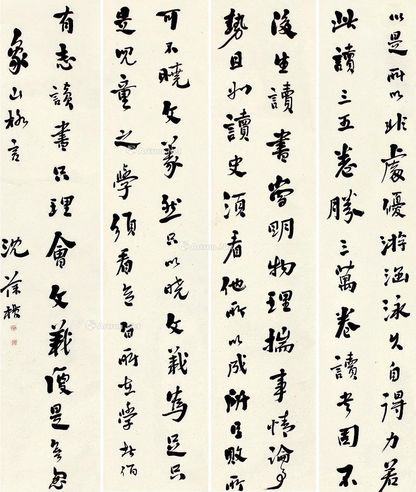 以是所以非處優游涵泳久自得力若
此讀三五卷勝三萬卷讀書固不
後生讀書當明物理揣事情論事
勢且如讀史須看他所以成所以敗所
可不曉文義然只以曉文義為足只
是兒童之學須看意旨所在學者
有志讀書只理會文義便是無志
象山格言
沈葆楨